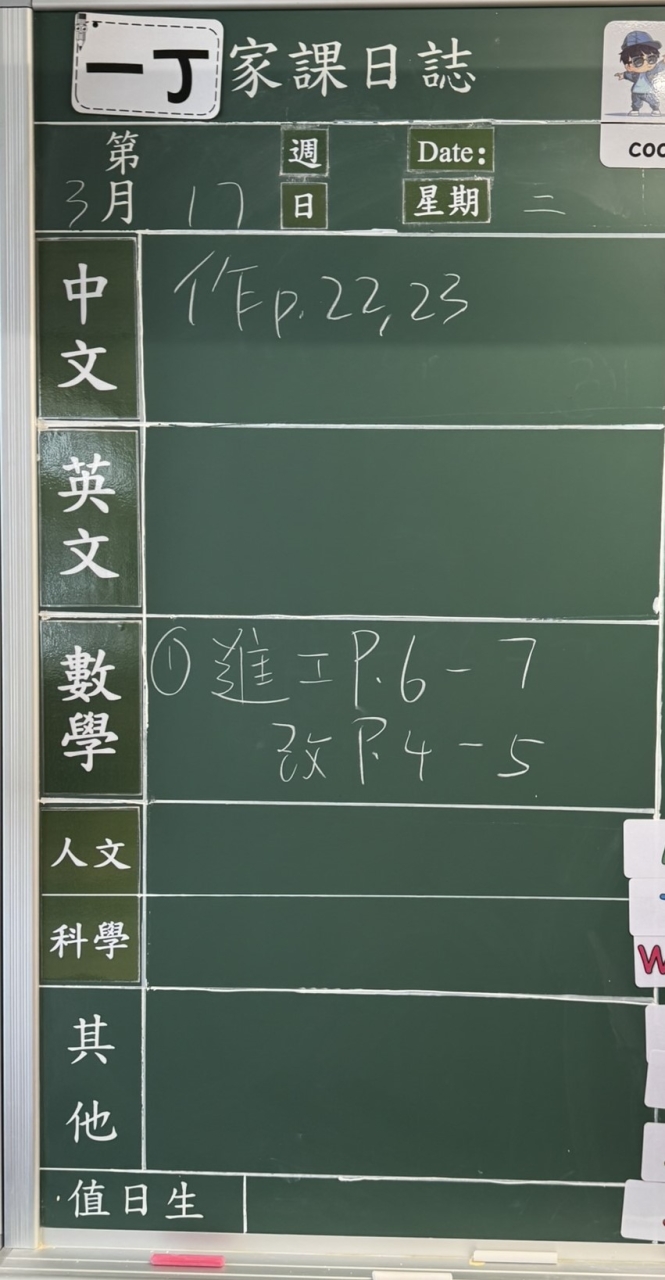 一丁 家課日誌
第 週 Date:
3月 17 日 星期 二
coo
中文 作p.22,23
英文
數學 ① 進工P.6-7
改P.4-5
人文
科學
其他
值日生
W